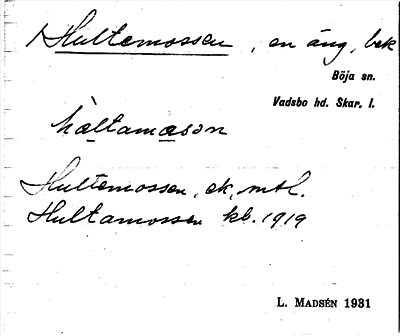 Hultemossen, en äng, bek
Böja sn.
Vadsbo hd. Skar. l.
hæltamåsən
Hultemossen, ek, mtl.
Hultamossen kb. 1919
L. MADSÉN 1931